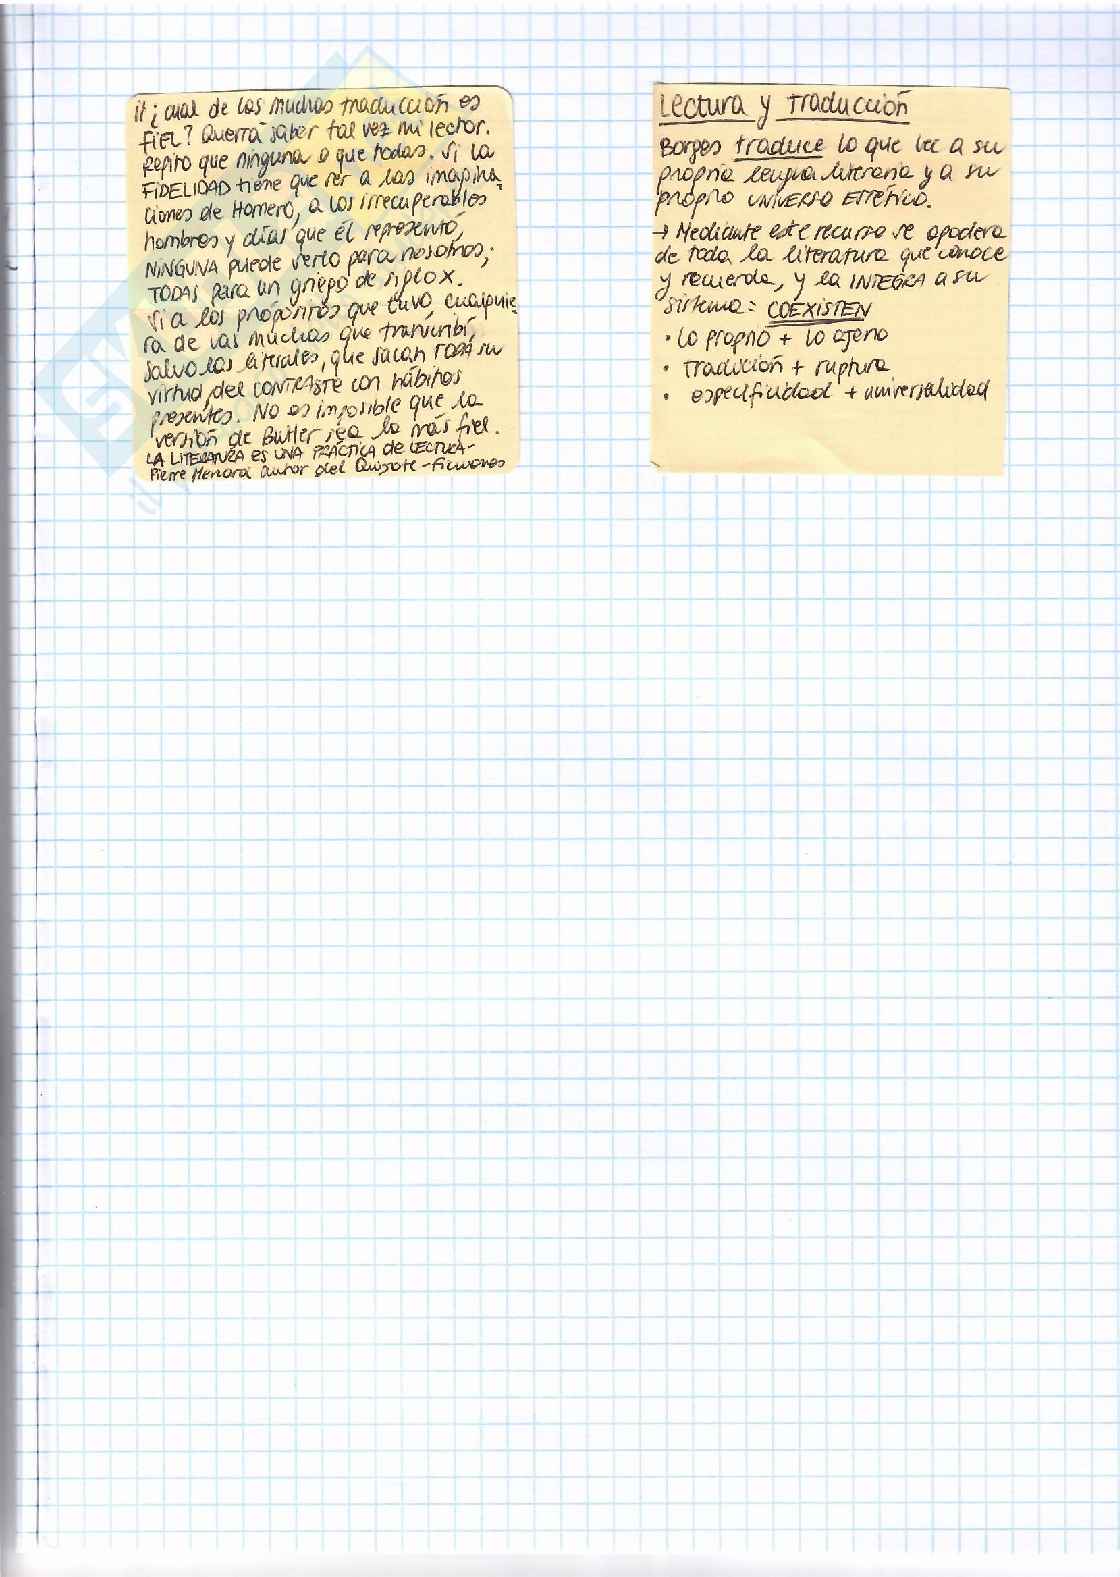 ¿cual de las muchas traducción es
FIEL? Querrà saber tal vez mi lector.
Repito que ninguna o que todas. Si la
FIDELIDAD tiene que ver a las imagina-
ciones de Homero, a los irrecuperables
hombres y días que él representó,
NINGUNA puede verlo para nosotros;
TODAS para un griego de siglo X.
Si a los propósitos que tuvo, cualquie-
ra de las muchas que transcribí,
salvo las literales, que sacan toda su
virtud del CONTRASTE con hábitos
presentes. No es imposible que la
versión de Butler sea la más fiel.
LA LITERATURA es UNA PRÁCTICA de LECTURA-
Pierre Menard autor del Quijote - Ficciones
Lectura y Traducción
Borges traduce lo que lee a su
propria lengua literaria y a su
proprio UNIVERSO ESTÉTICO.
→ Mediante este recurso se apodera
de toda la literatura que conoce
y recuerda, y la INTEGRA a su
sistema: COEXISTEN
• Lo proprio + lo ajeno
• Tradición + ruptura
• especificidad + universalidad